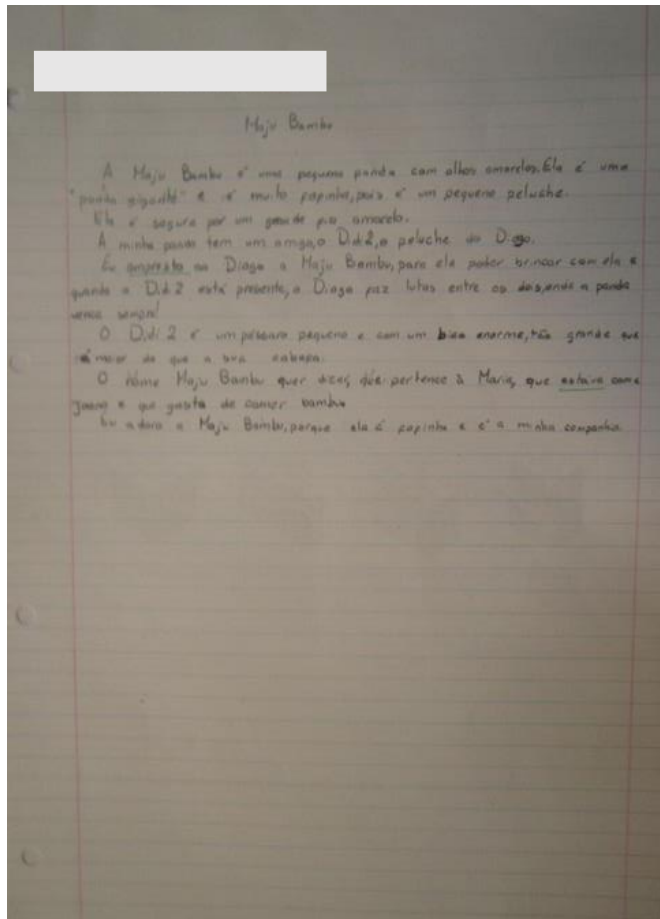 Maju Bambu
A Maju Bambu é uma pequena panda com olhos amarelos. Ela é uma
"panda gigante" e é muito fofinha, pois é um pequeno peluche.
Ela é segura por um grande fio amarelo.
A minha panda tem um amigo, o Didi 2, o peluche do Diogo.
Eu empresto ao Diogo a Maju Bambu, para ele poder brincar com ela e
quando o Didi 2 está presente, o Diogo faz lutas entre os dois, onde a panda
vence sempre!
O Didi 2 é um pássaro pequeno e com um bico enorme, tão grande que
é maior do que a sua cabeça.
O nome Maju Bambu quer dizer, que pertence à Maria, que estava com a
Joana e que gosta de comer bambu
Eu adoro a Maju Bambu, porque ela é fofinha e é a minha companhia